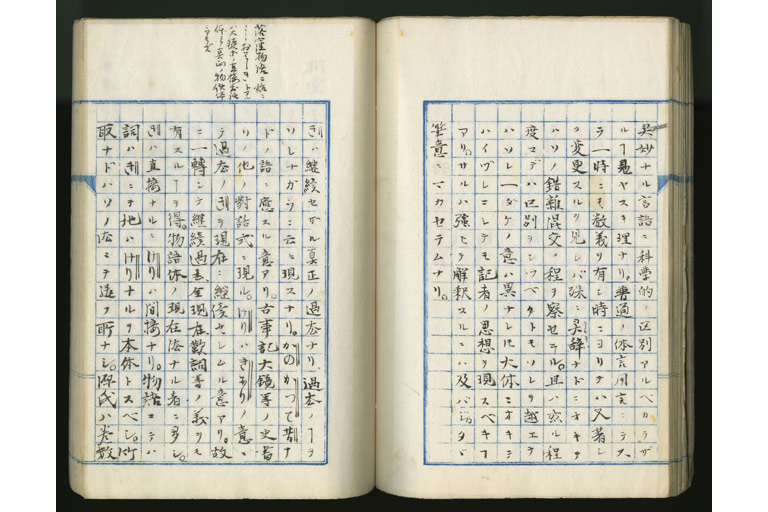 其妙ナル言語ニ科学的ノ区別アルベカラザ
ルヿ見ヤスキ理ナリ。普通ノ体言用言ニテス
ラ一時ニモ数義ヲ有シ時ニヨリテハ又著シ
ク変更スルヲ見レバ殊ニ其辞ナドニオキテ
ハソノ錯雑混交ノ程ヲ察セラル。且ハ或ル程
度マデハ区別ラシツベクトモソレヲ越エテ
ハソレ一ダケノ意ハ異ナレ𪜈大体ニオキテ
ハイヅレニシテモ記者ノ思想ヲ現スベキヿ
アリ。サルハ強ヒテ解釈スルニハ及バジ。タヾ
筆意ニマカセテムナリ。
落窪物語ニ始ニ
おちくぼ
ハ大徳ホノ直接法
真ノ物語体
ナラズ
きハ継続セザル真正ノ過去ナリ、過去ノヿヲ
ソレナガラニ云ヒ現スナリ。かのかつて昔ナ
ドノ語ニ應スル意アリ。古事記大鏡等ノ史書
ソノ他ノ對話式ニ現ル。けりハきありノ意ニ
テ過去ノきヲ現在ニ継続セシムル意アリ。故
ニ一轉シテ継続過去全現在歎詞等ノ義ヲモ
有スルヿヲ得。物語体ノ現在法ナル者ニ多シ。
きハ直接ナルニけりハ間接ナリ。物語ニテハ
詞ハきニテ地ハけりナルヲ本体トスベシ。竹
取ナドハソノ法ニテ違フ所ナシ。源氏ハ巻数